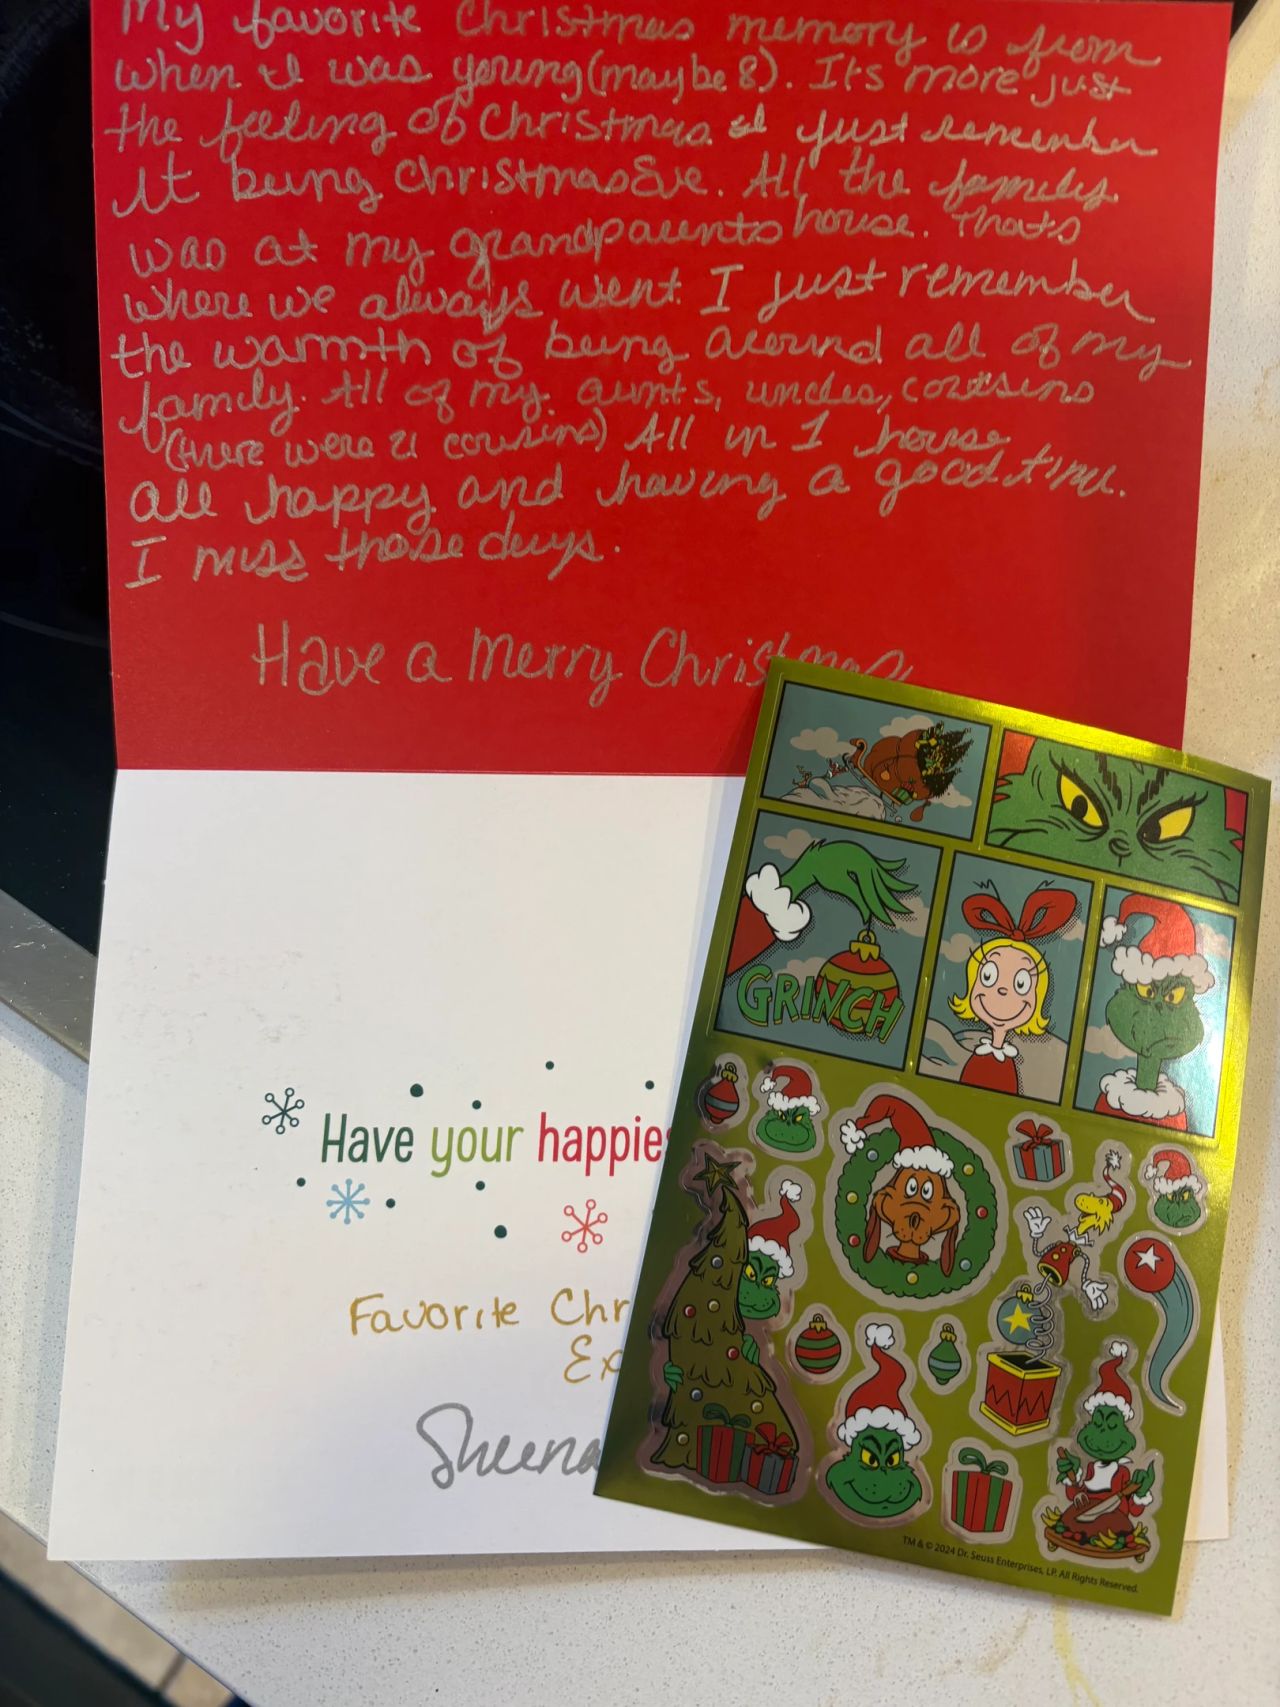 My favorite Christmas memory is from
when I was young (maybe 8). Its more just
the feeling of Christmas. I just remember
it being Christmas Eve. All the family
was at my grandparents house. Thats
where we always went. I just remember
the warmth of being around all of my
family. All of my aunts, uncles, cousins
(there were 21 cousins) All in 1 house
all happy and having a good time.
I miss those days.
Have a Merry Christmas
GRINCH
Have your happies
Favorite Chr
Ex
Sheena
TM & © 2024 Dr. Seuss Enterprises, LP. All Rights Reserved.